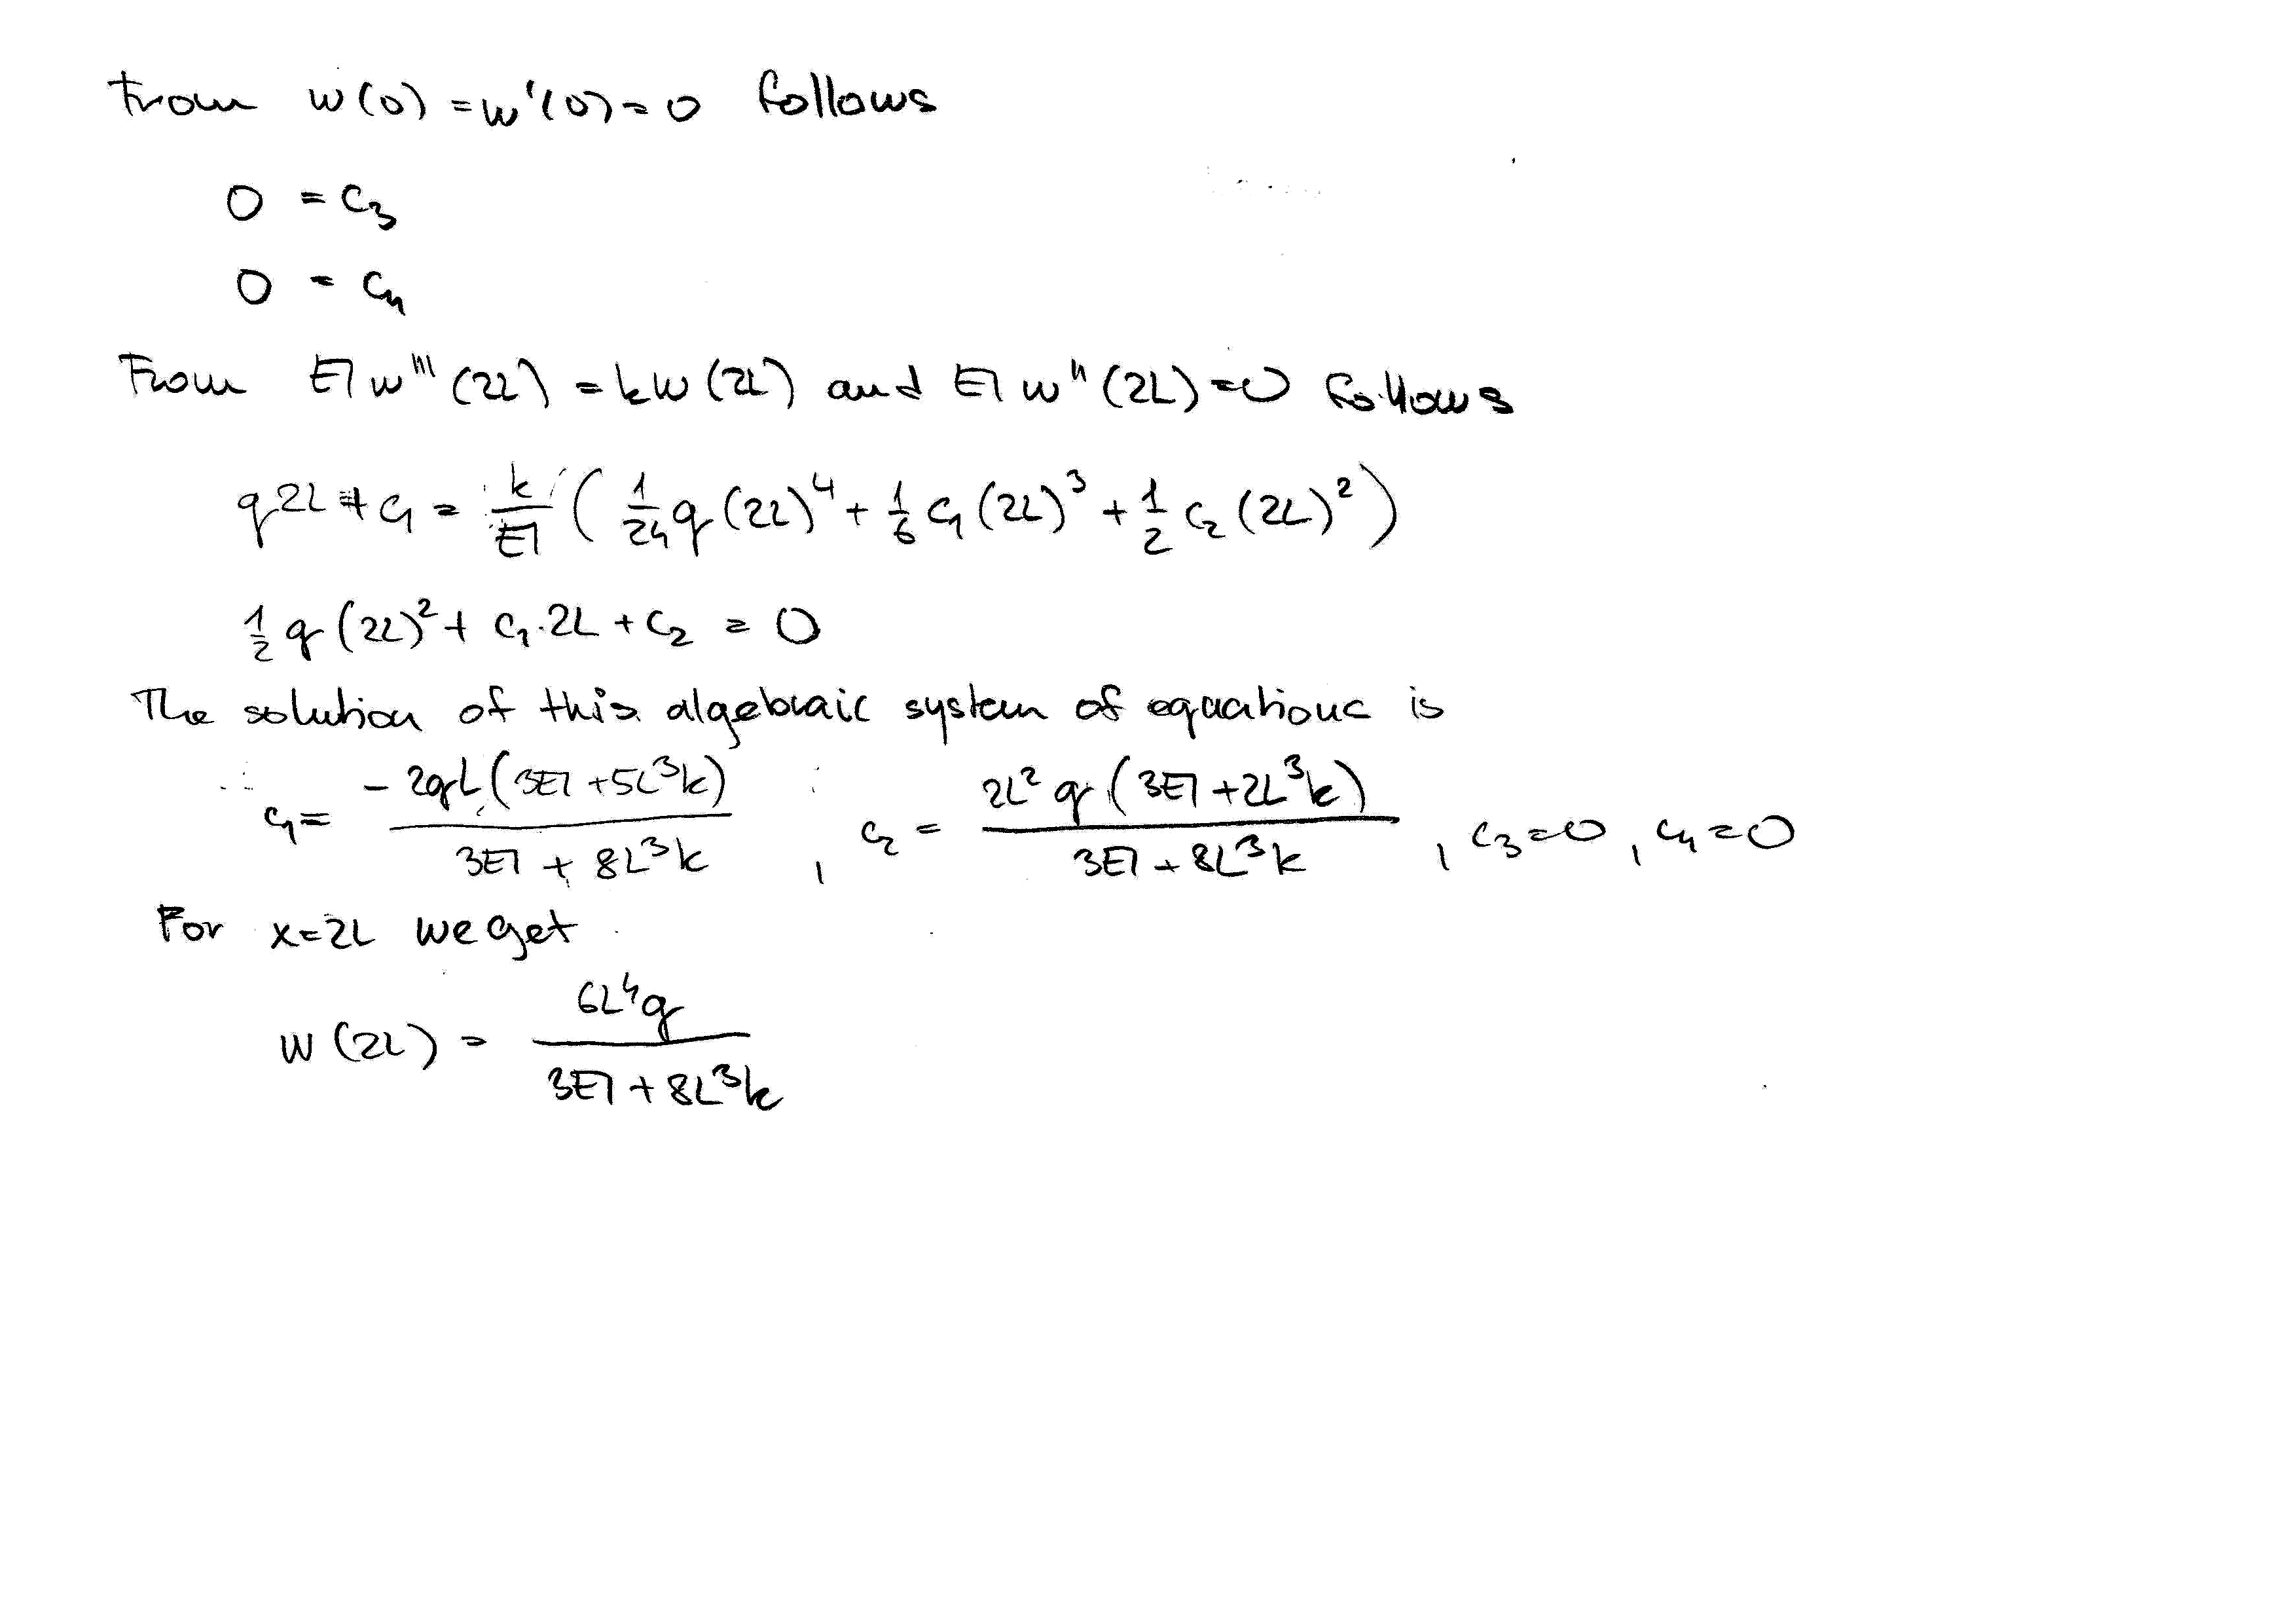 From w(0) = w'(0) = 0 follows
0 = c₃
0 = c₄
From EI w'''(2L) = kw(2L) and EI w''(2L) = 0 follows
q2L + c₁ = k/EI ( 1/24 q (2L)⁴ + 1/6 c₁ (2L)³ + 1/2 c₂ (2L)² )
1/2 q (2L)² + c₁·2L + c₂ = 0
The solution of this algebraic system of equations is
c₁ = -2qL(3EI + 5L³k) / (3EI + 8L³k) , c₂ = 2L²q(3EI + 2L³k) / (3EI + 8L³k) , c₃ = 0 , c₄ = 0
For x = 2L we get
w(2L) = 6L⁴q / (3EI + 8L³k)